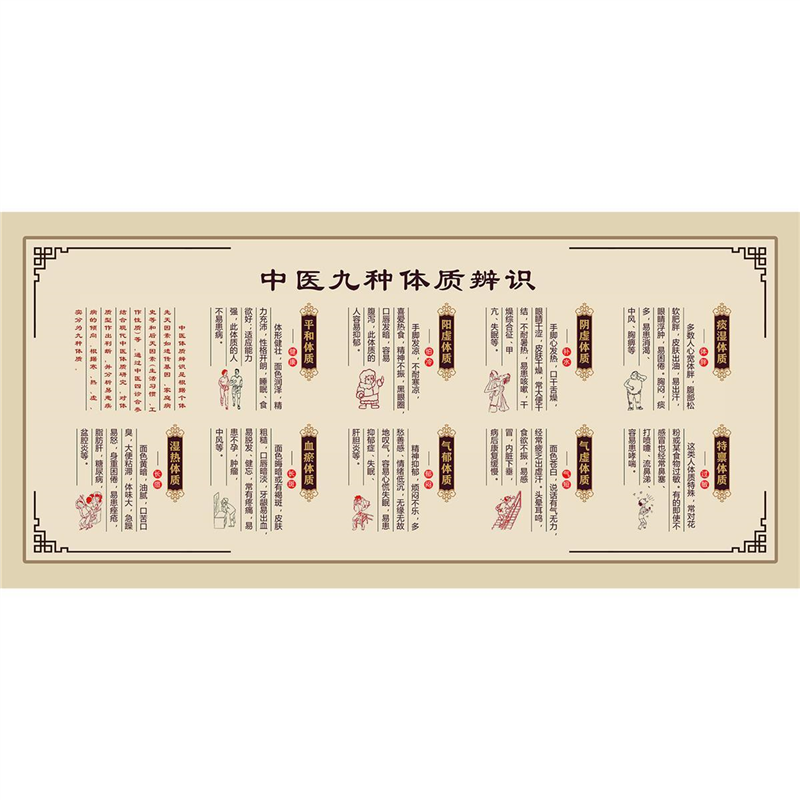 中医九种体质辨识
痰湿体质
体胖
多数人心宽体胖，腹部松
软肥胖，皮肤出油，易出汗，
眼睛浮肿，易困倦。胸闷，痰
多，易患消渴、
中风、胸痹等
阴虚体质
缺水
手脚心发热，口干舌燥，
眼睛干涩，皮肤干燥，常大便干
结，不耐暑热，易患咳嗽，干
燥综合征、甲
亢、失眠等。
阳虚体质
怕冷
手脚发凉，不耐寒凉，
喜爱热食，精神不振，黑眼圈，
口唇发暗、容易
腹泻，此体质的
人容易抑郁。
平和体质
健康
体形健壮，面色润泽，精
力充沛，性格开朗，睡眠、食
欲好；适应能力
强，此体质的人
不易患病。
中医体质辨识是根据个体
先天因素如遗传基因、家庭病
史等和后天因素（生活习惯、工
作性质）等，通过中医四诊合参
结合现代中医体质研究，对体
质型作出判断，并分析易患疾
病的倾向，根据寒、热、虚、
实分为九种体质。
特禀体质
过敏
这类人体质特殊，常对花
粉或某食物过敏。有的即使不
感冒也经常鼻塞、
打喷嚏、流鼻涕、
容易患哮喘。
气虚体质
气短
面色苍白，说话有气无力，
经常疲乏出虚汗。头晕耳鸣，
食欲不振，易感
冒，内脏下垂，
病后康复缓慢。
气郁体质
郁闷
精神抑郁，烦闷不乐，多
愁善感，情绪低沉，无缘无故
地叹气，容易心慌失眠，易患
抑郁症、失眠、
肝胆炎等。
血瘀体质
长斑
面色晦暗或有褐斑，皮肤
粗糙，口唇暗淡，牙龈易出血，
易脱发、健忘，常有疼痛，易
患不孕，肿瘤、
中风等。
湿热体质
长痘
面色黄暗，油腻，口苦口
臭，大便粘滞，体味大，急躁
易怒，身重困倦，易患痤疮，
脂肪肝，糖尿病，
盆腔炎等。